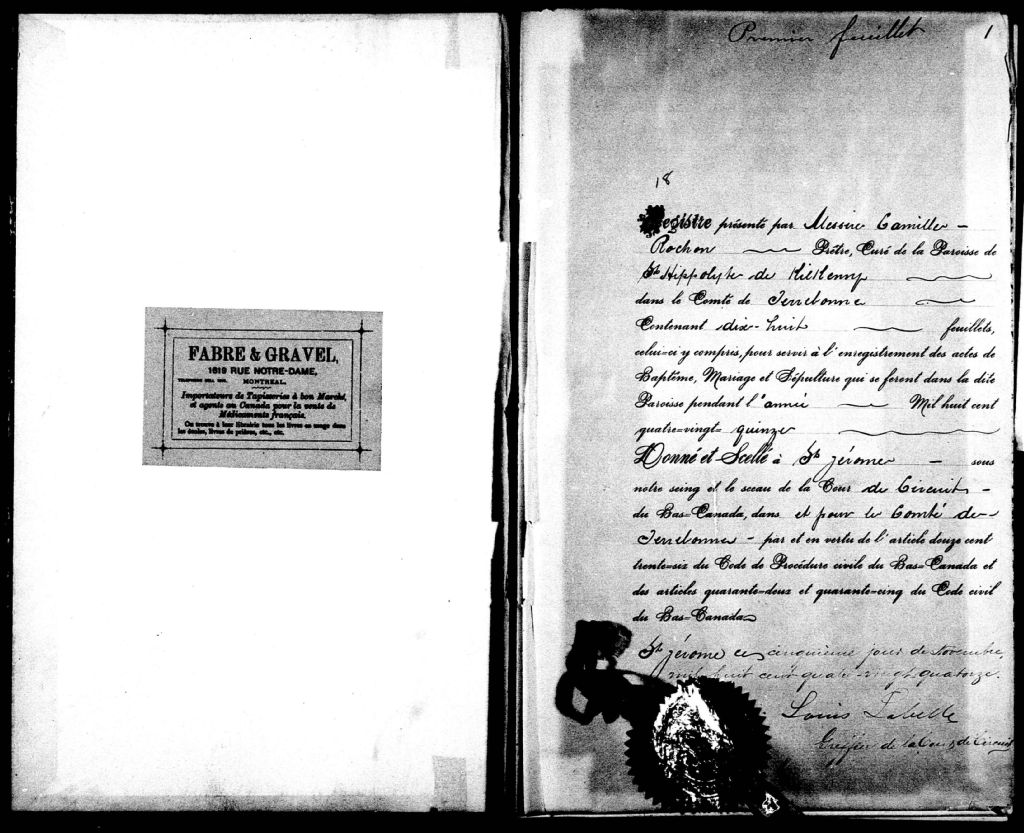 FABRE & GRAVEL,
1619 RUE NOTRE-DAME,
MONTREAL.
Importateurs de Tapisseries à bon Marché,
et agents au Canada pour la vente de
Médicaments français.
On trouve à leur librairie tous les livres en usage dans
les écoles, livres de prières, etc., etc.
Premier feuillet
1
18
Registre présenté par Messire Camille -
Rochon Prêtre, Curé de la Paroisse de
St Hippolyte de Kilkenny
dans le Comté de Terrebonne
Contenant dix-huit feuillets,
celui-ci y compris, pour servir à l'enregistrement des actes de
Baptême, Mariage et Sépulture qui se feront dans la dite
Paroisse pendant l'année Mil huit cent
quatre-vingt-quinze
Donné et Scellé à St Jérome - sous
notre seing et le sceau de la Cour de Circuit -
du Bas-Canada, dans et pour le Comté de
Terrebonne - par et en vertu de l'article douze cent
trente-six du Code de Procédure civile du Bas-Canada et
des articles quarante-deux et quarante-cinq du Code civil
du Bas-Canada
St Jérome ce cinquième jour de Novembre,
mil huit cent quatre-vingt-quatorze.
Louis Labelle
Greffier de la Cour de Circuit